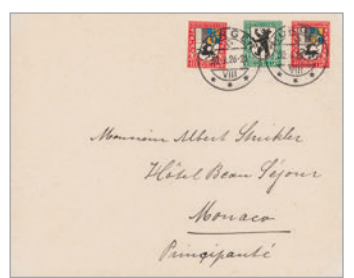 VIII
VIII
Monsieur Albert Strickler
Hôtel Beau Séjour
Monaco
Principauté